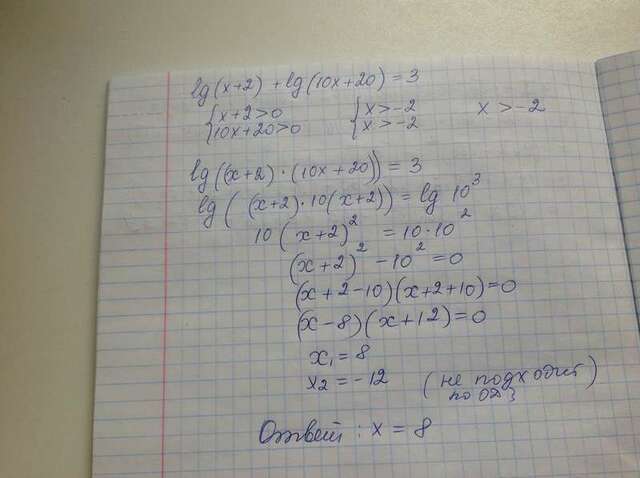 lg(x+2) + lg(10x+20) = 3
{ x+2>0 { x>-2 x>-2
{ 10x+20>0 { x>-2
lg((x+2)·(10x+20)) = 3
lg( (x+2)·10(x+2)) = lg 10³
10(x+2)² = 10·10²
(x+2)² - 10² = 0
(x+2-10)(x+2+10)=0
(x-8)(x+12)=0
x₁ = 8
x₂ = -12 (не подходит
по ОДЗ)
Ответ: x = 8